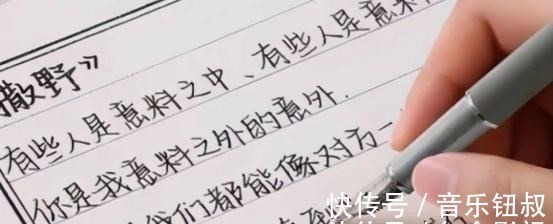 撒野》
有些人是意料之中、有些人是意料
你是我意料之外的意外.
我们都能像对方一
快传号 / 音乐钮叔